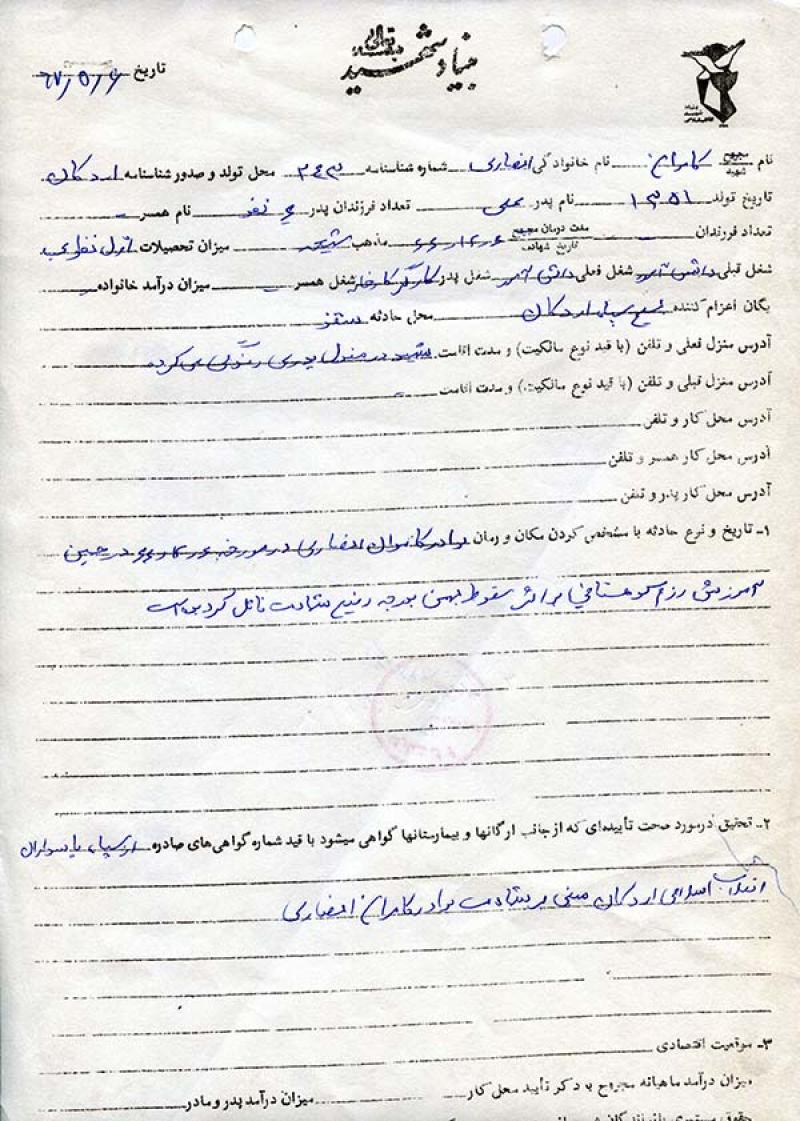 بسمه تعالی
بنیاد شهید
تاریخ ۶۷/۵/۶
نام مجروح شهید کامران نام خانوادگی انصاری شماره شناسنامه ۳۴۳ محل تولد و صدور شناسنامه اردکان
تاریخ تولد ۱۳۵۱ نام پدر علی تعداد فرزندان پدر نفر نام همسر -
تعداد فرزندان - مدت درمان مجروح تاریخ شهادت مذهب شیعه میزان تحصیلات
شغل قبلی دانش آموز شغل فعلی دانش آموز شغل پدر کارگر کارخانه شغل همسر - میزان درآمد خانواده
یگان اعزام کننده بسیج سپاه اردکان محل حادثه سقز
آدرس منزل فعلی و تلفن (با قید نوع مالکیت) و مدت اقامت شهید در منزل پدری زندگی می‌کرده
آدرس منزل قبلی و تلفن (با قید نوع مالکیت) و مدت اقامت -
آدرس محل کار و تلفن
آدرس محل کار همسر و تلفن
آدرس محل کار پدر و تلفن
۱ـ تاریخ و نوع حادثه با مشخص کردن مکان و زمان برادر کامران انصاری در مورخه در حین
آموزش رزم کوهستانی بر اثر سقوط بهمن بدرجه رفیع شهادت نائل گردیده است
۲ـ تحقیق درمورد صحت تأییده‌ای که از جانب ارگانها و بیمارستانها گواهی میشود با قید شماره گواهی‌های صادره از سپاه پاسداران
انقلاب اسلامی اردکان مبنی بر شهادت برادر کامران انصاری
۳ـ موقعیت اقتصادی
میزان درآمد ماهیانه مجروح با ذکر تأیید محل کار میزان درآمد پدر و مادر